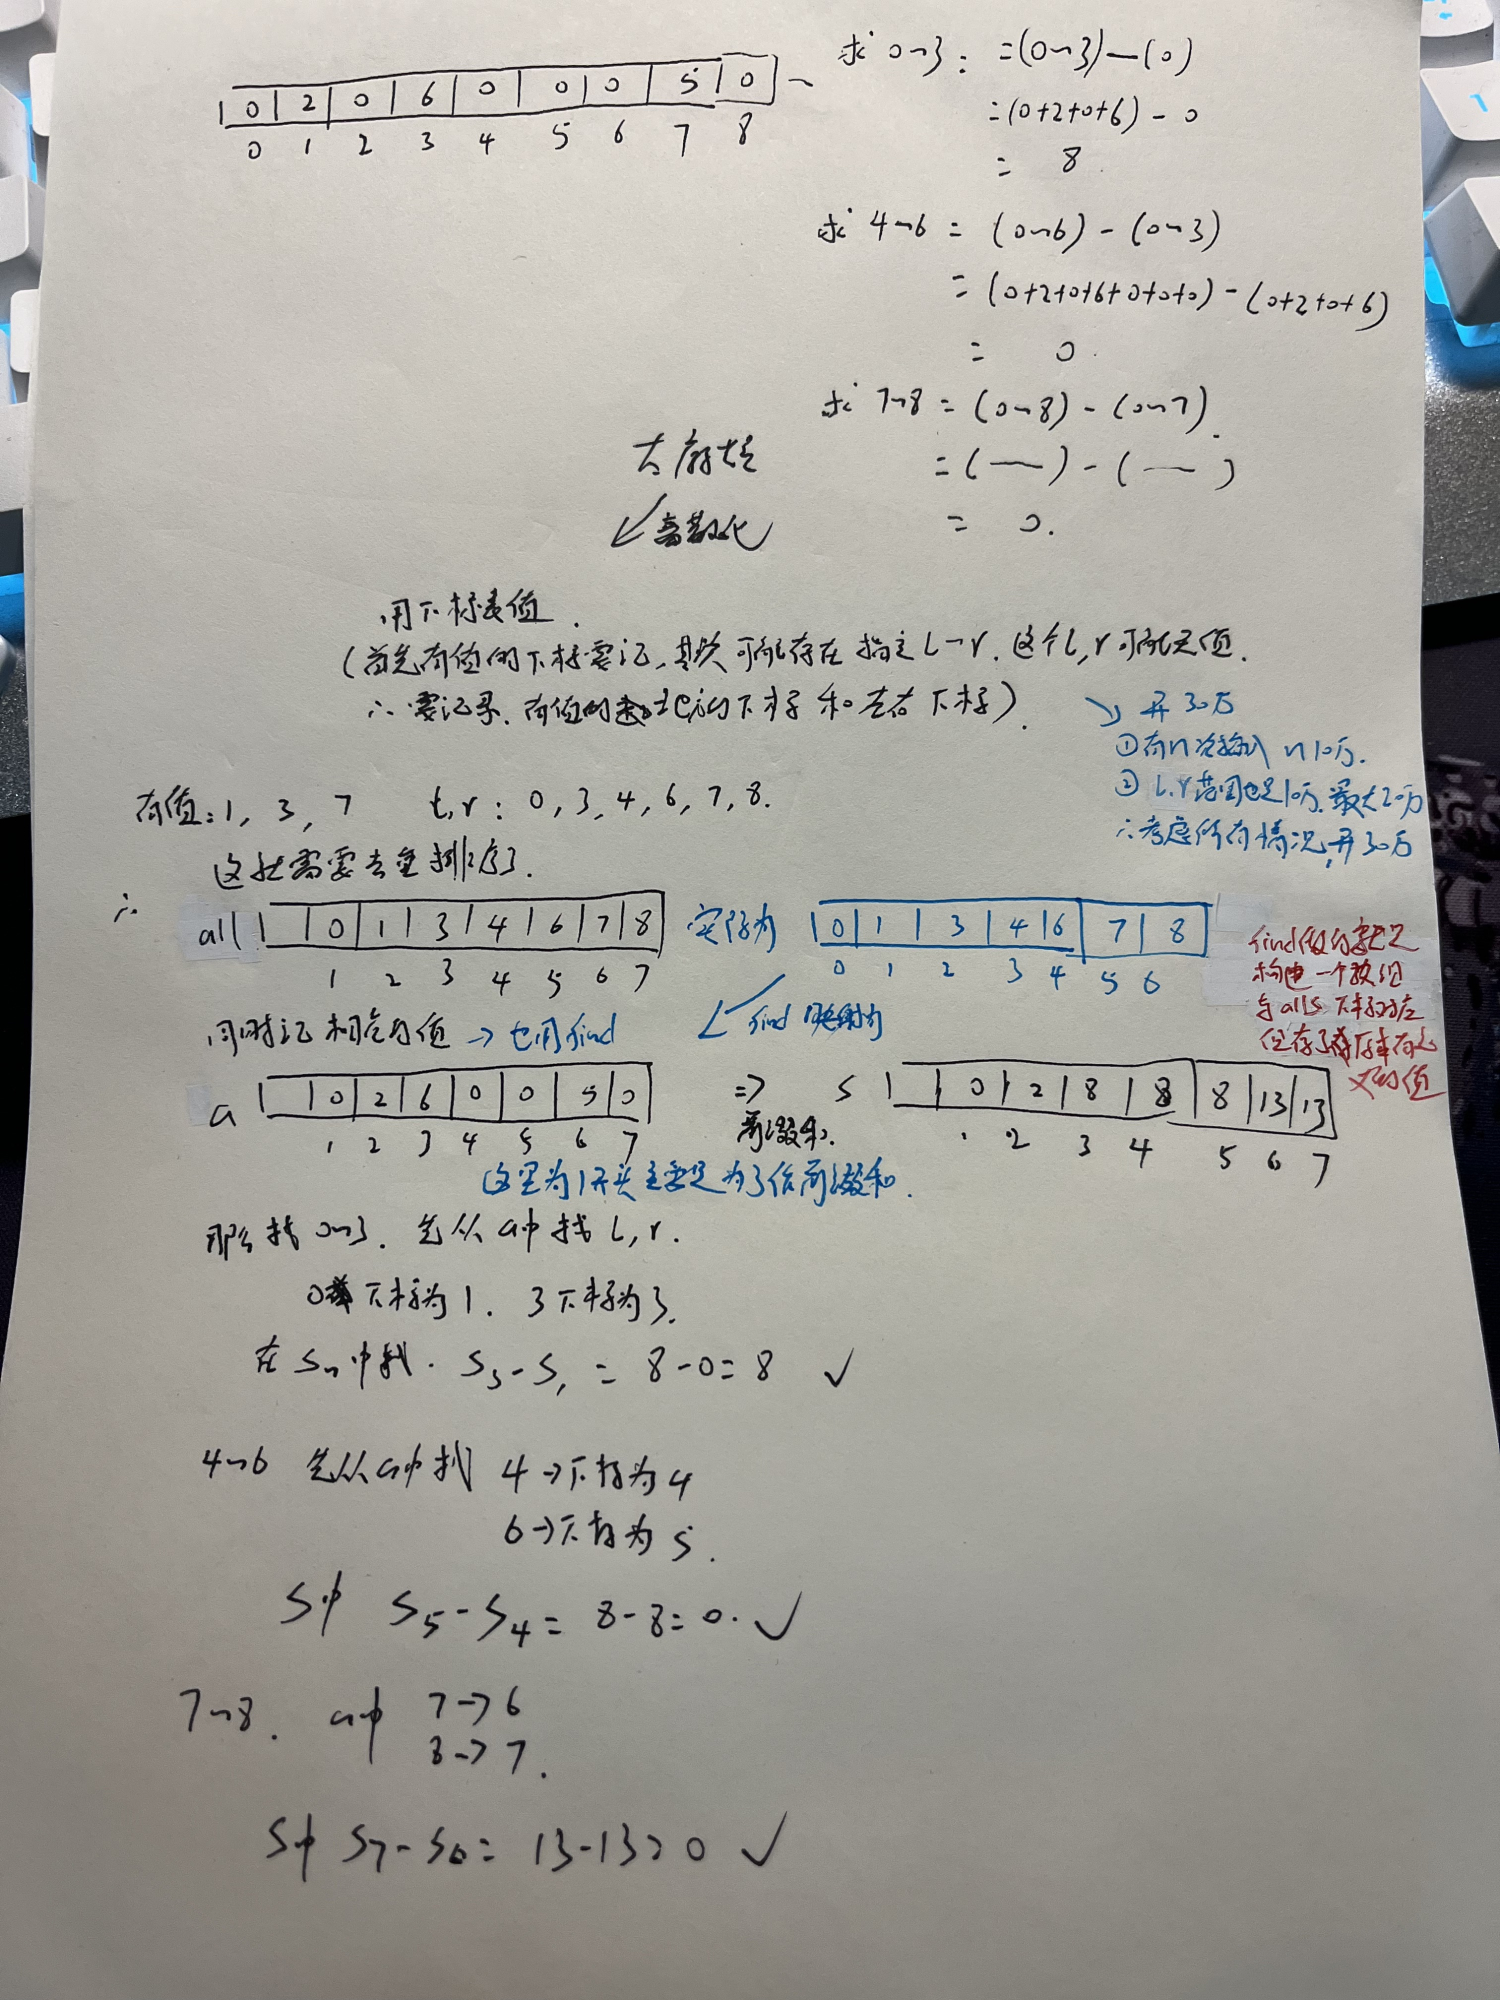 0 2 0 6 0 0 0 5 0
0 1 2 3 4 5 6 7 8
求 0~3 : =(0~3)-(0)
=(0+2+0+6) - 0
= 8
求 4~6 = (0~6) - (0~3)
= (0+2+0+6+0+0+0) - (0+2+0+6)
= 0.
求 7~8 = (0~8) - (0~7).
= ( — ) - ( — )
= 0.
太麻烦
↙ 离散化
用下标表值.
(首先有值的下标要记, 其次可能存在指定 L~r. 这个 L, r 可能无值.
∴ 要记录. 有值的 下标和左右下标).
↘ 开 30万
① 有n次输入 n 10万.
② L, r 范围也是10万. 最大20万
∴ 考虑所有情况, 开30万
有值: 1, 3, 7 L, r : 0, 3, 4, 6, 7, 8.
这就需要去重排序了.
∴ all 0 1 3 4 6 7 8 实际为 0 1 3 4 6 7 8
1 2 3 4 5 6 7 0 1 2 3 4 5 6
find做的事就是
构建一个数组
与alls下标对应
同时记相应的值 → 也用find ↙ find 映射为
a 0 2 6 0 0 5 0 => s 0 2 8 8 8 13 13
前缀和.
1 2 3 4 5 6 7 1 2 3 4 5 6 7
这里为1开头主要是为了作前缀和.
那么找 0~3. 先从 a中找 L, r.
0 下标为 1. 3 下标为 3.
在 Sn 中找. S3 - S1 = 8-0=8 ✓
4~6 先从a中找 4→下标为 4
6→下标为 5.
S中 S5 - S4 = 8-8=0. ✓
7~8. a中 7→6
8→7.
S中 S7 - S6 = 13-13=0 ✓